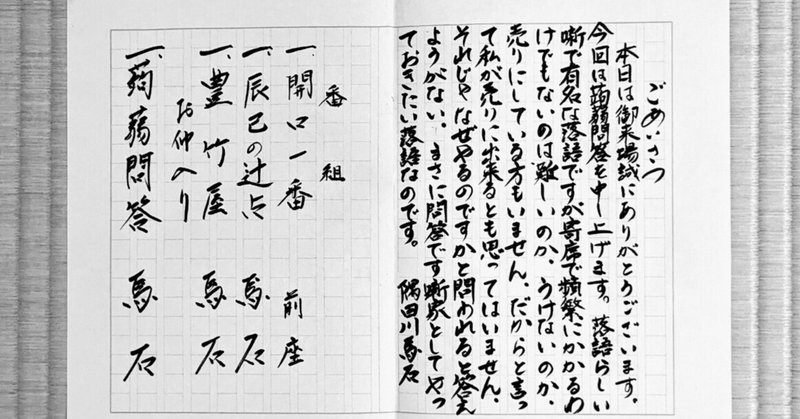 ごあいさつ
本日は御来場誠にありがとうございます。
今回は蒟蒻問答を申し上げます。落語らしい
噺で有名な落語ですが寄席で頻繁にかかるわ
けでもないのは難しいのか、うけないのか、
売りにしている方もいません。だからと言っ
て私が売りに出来るとも思ってはいません。
それじゃなぜやるのですかと問われると答え
ようがない。まさに問答です噺家としてやっ
ておきたい落語なのです。 隅田川馬石
番組
一、開口一番 前座
一、辰巳の辻占 馬石
一、豊竹屋 馬石
お仲入り
一、蒟蒻問答 馬石